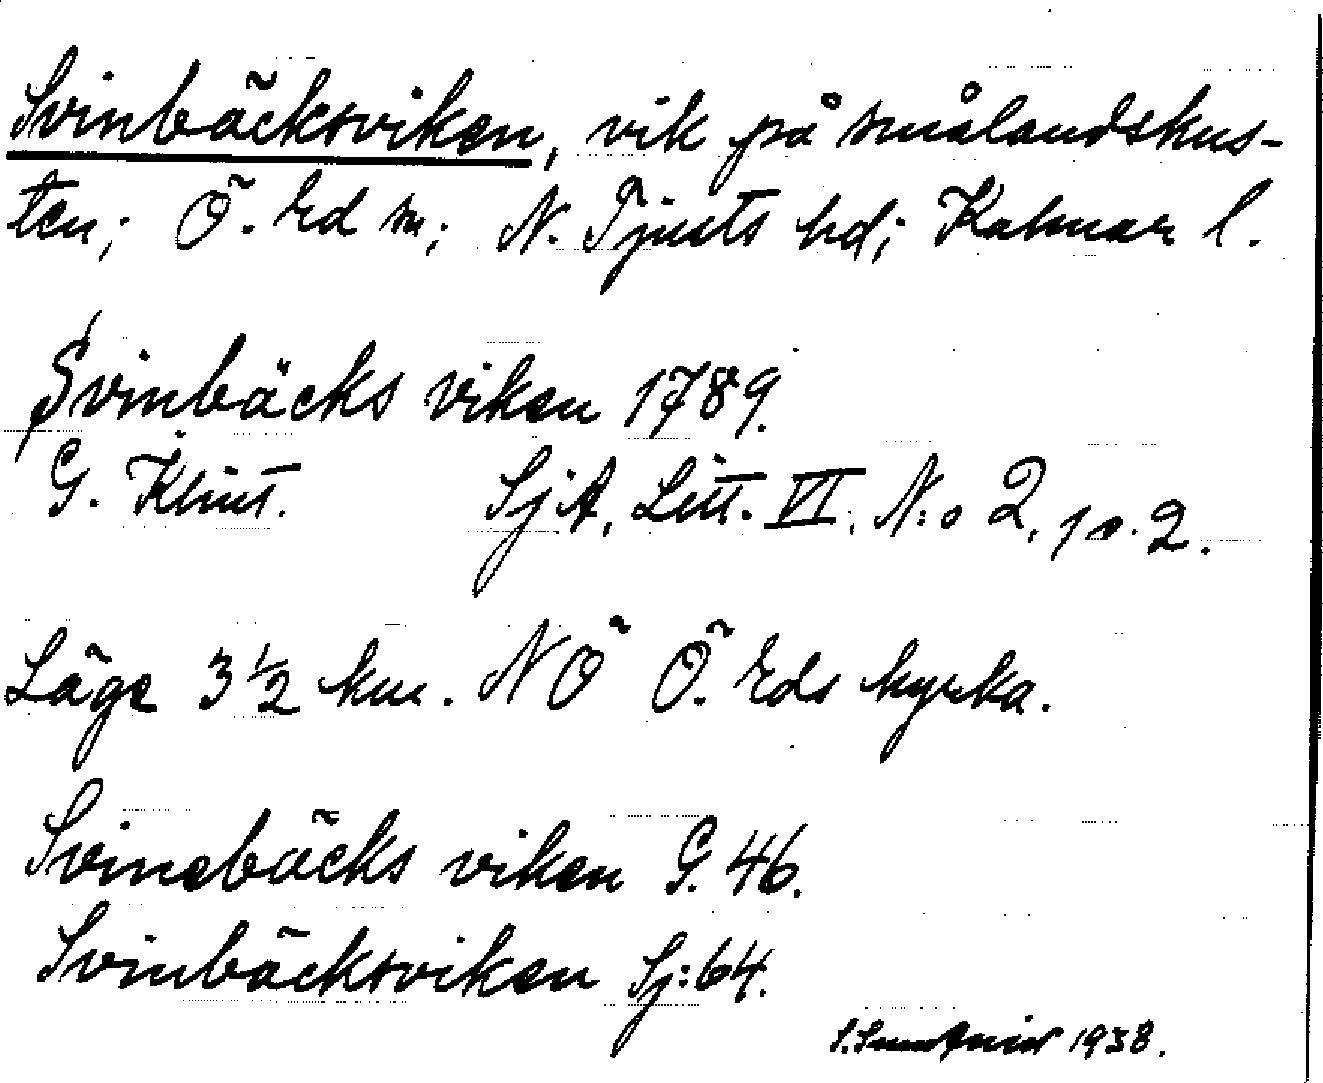 Svinbäcksviken, vik på smålandskus-
ten; Ö. Ed sn; N. Tjusts hd; Kalmar l.
Svinbäcks viken 1789.
G. Klint. SjA, Litt. VI, N:o 2, p. 2.
Läge 3 1/2 km. NÖ Ö. Eds kyrka.
Svinebäcks viken G. 46.
Svinbäcksviken Sj:64.
1938.